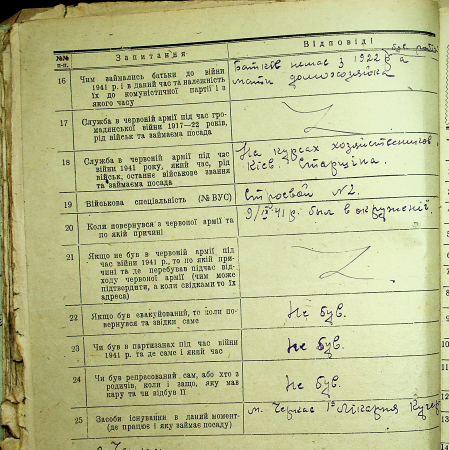 №№ п-п.
Запитання
Відповіді
16
Чим займались батьки до війни
1941 р. і в даний час та належність
їх до комуністичної партії і з
якого часу
Батьків немає з 1922 р. а
мати домохозяйка
17
Служба в червоній армії під час гро-
мадянської війни 1917—22 років,
рід військ та займаєма посада
18
Служба в червоній армії під час
війни 1941 року, який час, рід
військ, останнє військове звання
та займаєма посада
На курсах хозяйственников.
Київ. Старшина.
19
Військова спеціальність (№ ВУС)
Строевой №2.
20
Коли повернувся з червоної армії та
по якій причині
9/IX 41 р. был в окруженії.
21
Якщо не був в червоній армії під
час війни 1941 р., то по якій при-
чині та де перебував підчас від-
ходу червоної армії (чим може
підтвердити, а коли свідками то їх
адреса)
22
Якщо був евакуйований, то коли по-
вернувся та звідки саме
Не був.
23
Чи був в партизанах під час війни
1941 р. та де саме і який час
Не був.
24
Чи був репресований сам, або хто з
родичів, коли і защо, яку мав
кару та чи відбув її
Не був.
25
Засоби існування в даний момент-
(де працює і яку займає посаду)
м. Черкас